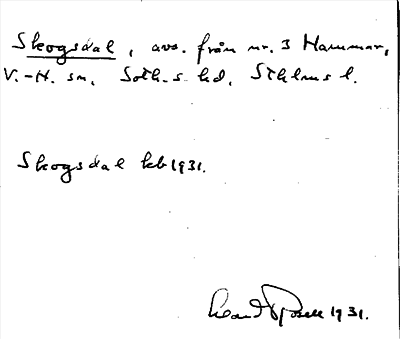 Skogsdal, avs. från nr. 3 Hammar,
V.-H. sn, Soth.s hd, Sthlms l.
Skogsdal kb 1931.
1931.